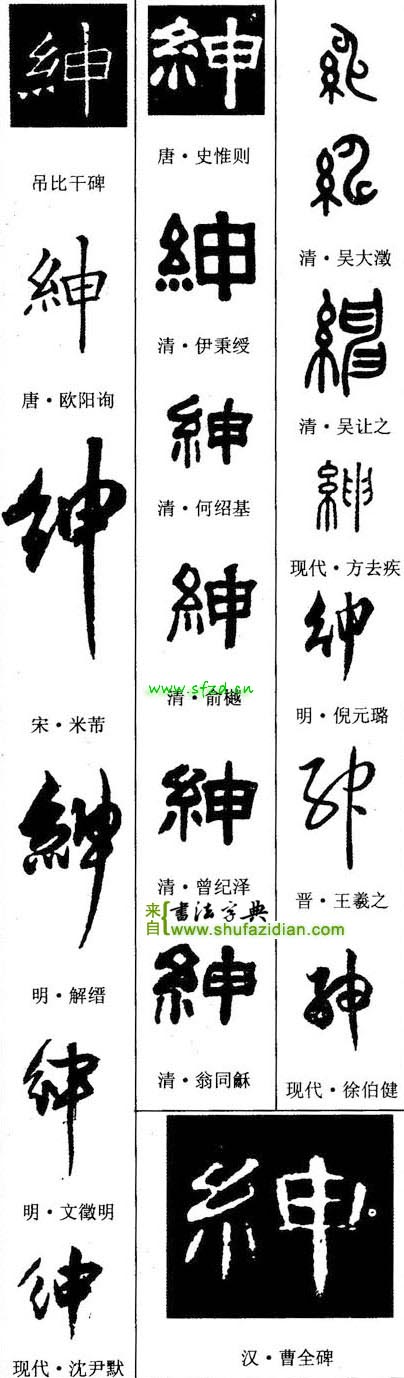 紳
吊比干碑
紳
唐·欧阳询
紳
宋·米芾
紳
明·解缙
紳
明·文徵明
紳
现代·沈尹默
紳
唐·史惟则
紳
清·伊秉绶
紳
清·何绍基
紳
www.sfzd.cn
清·俞樾
紳
清·曾纪泽
来自{書法字典
www.shufazidian.com
紳
清·翁同龢
紳
紳
清·吴大澂
紳
清·吴让之
紳
现代·方去疾
紳
明·倪元璐
紳
晋·王羲之
紳
现代·徐伯健
紳
汉·曹全碑